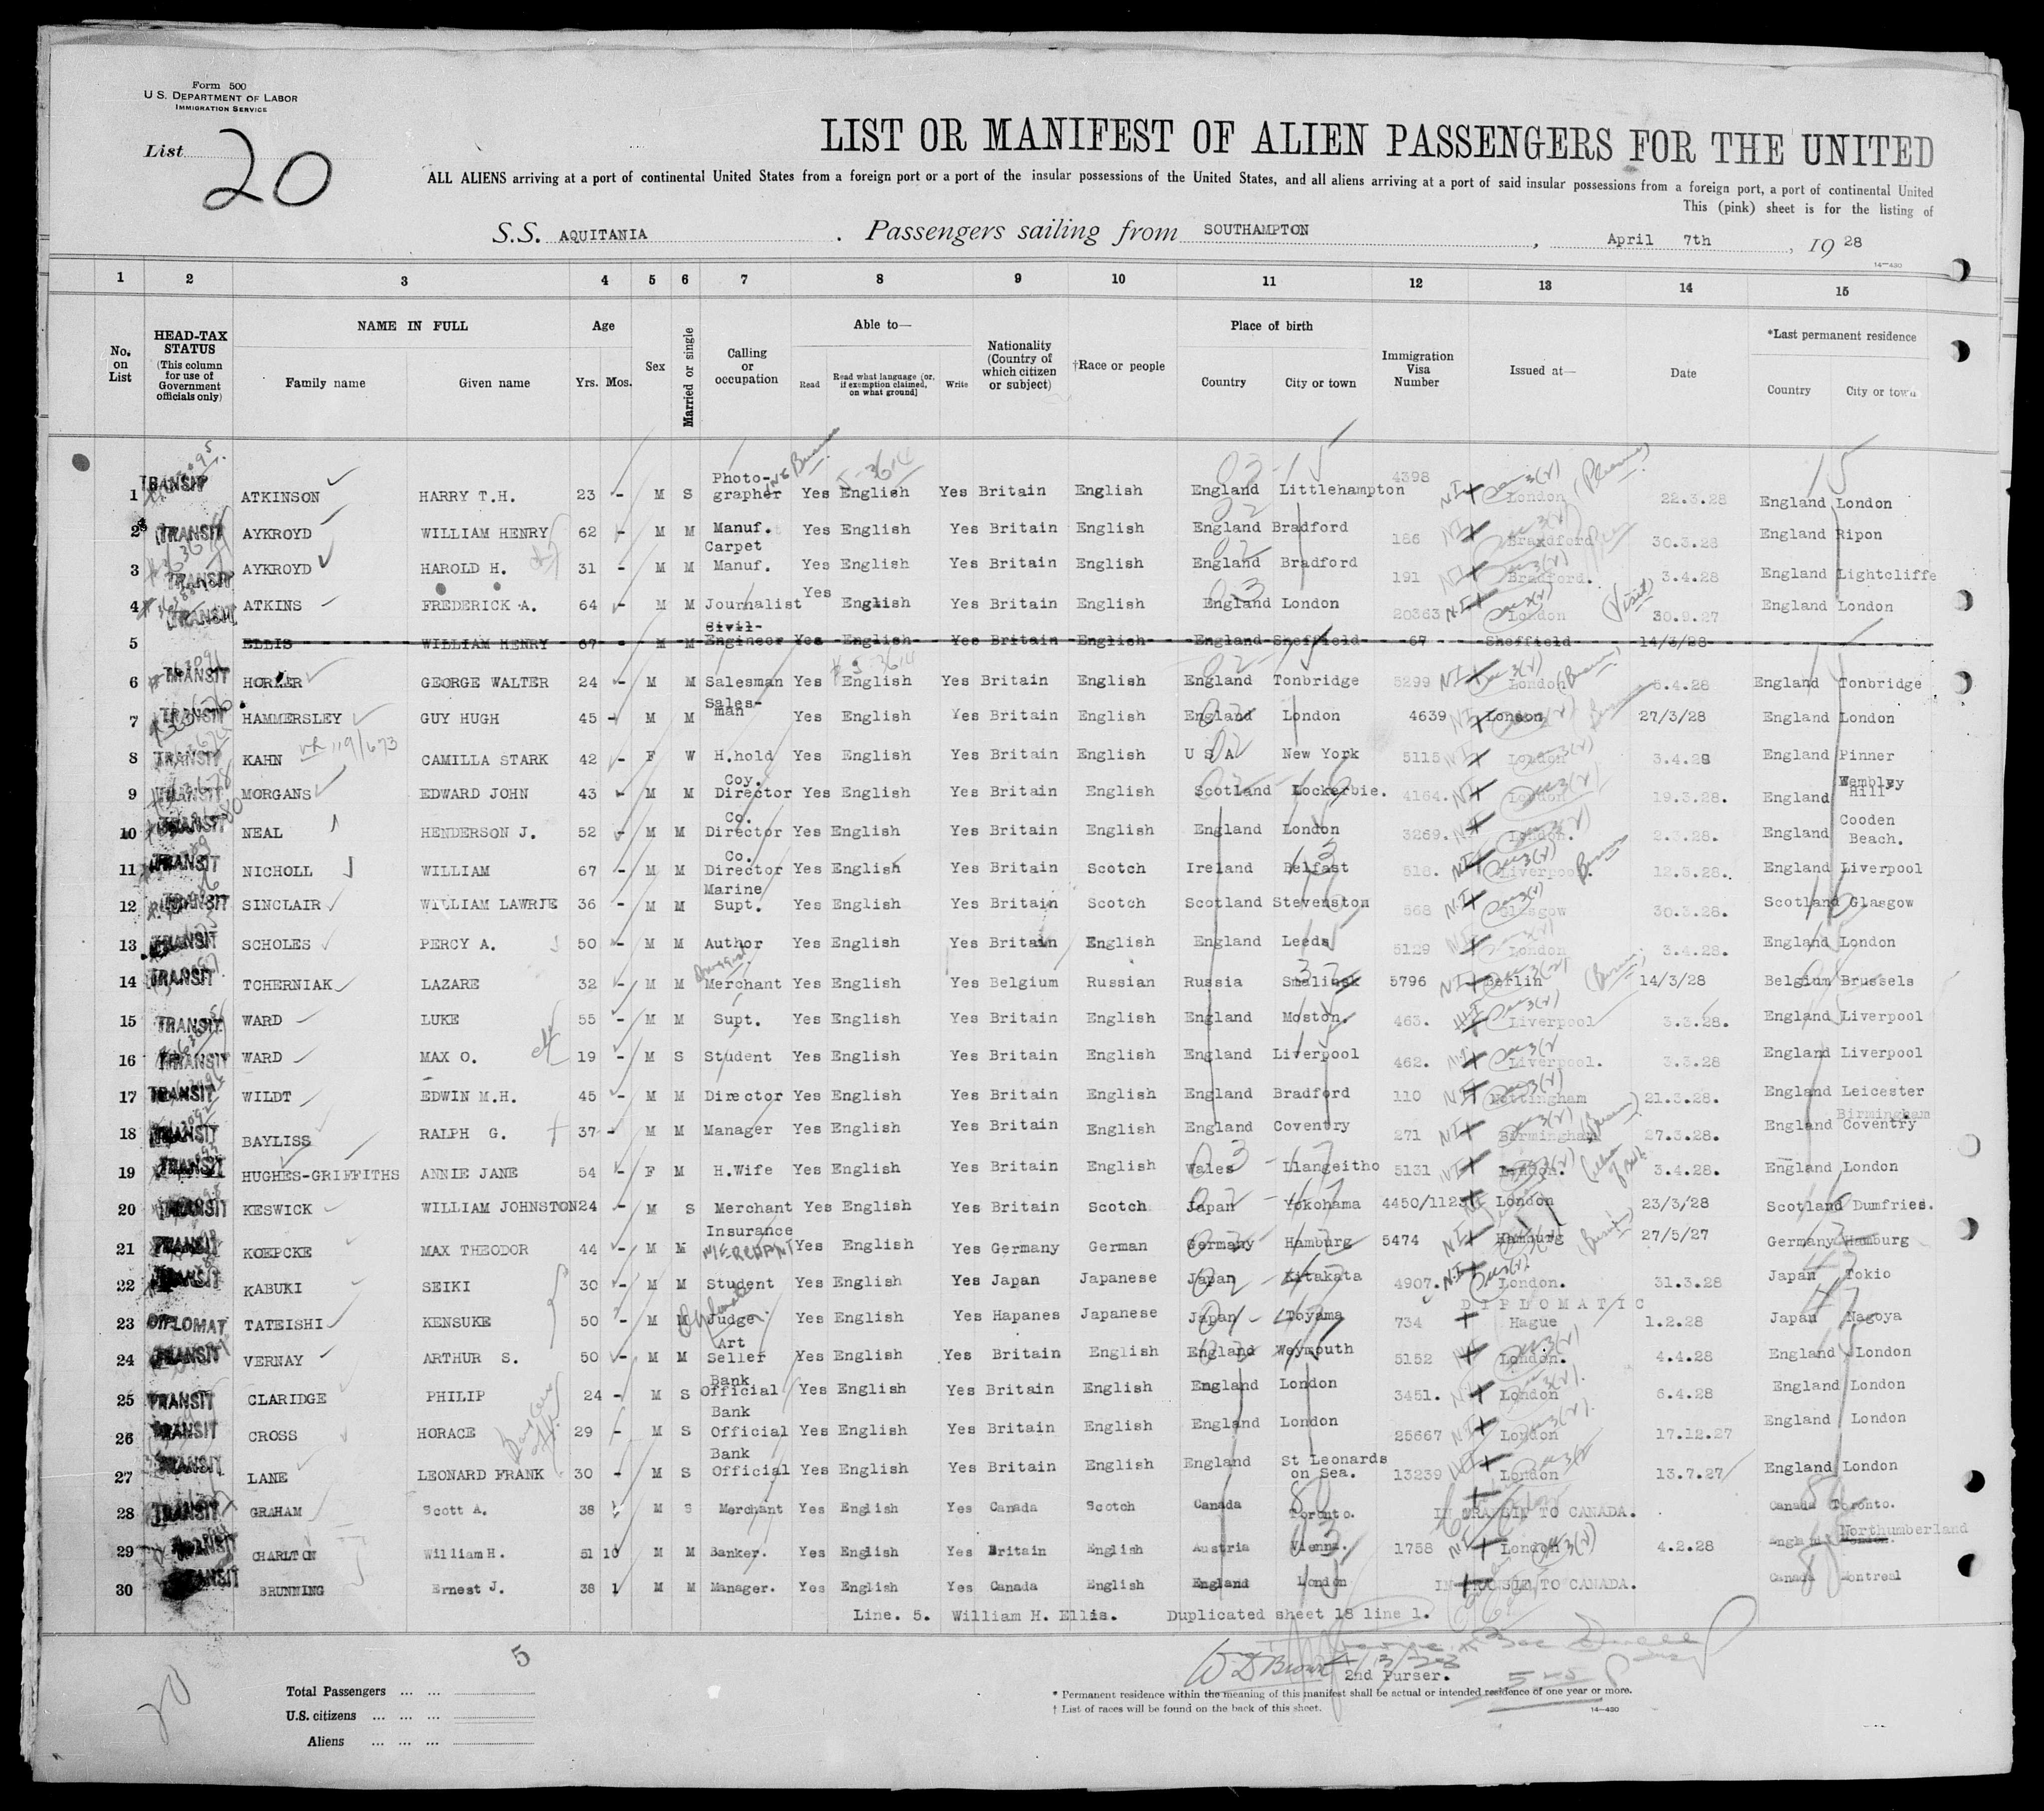 Form 500
U.S. DEPARTMENT OF LABOR
IMMIGRATION SERVICE
List 20
LIST OR MANIFEST OF ALIEN PASSENGERS FOR THE UNITED
ALL ALIENS arriving at a port of continental United States from a foreign port or a port of the insular possessions of the United States, and all aliens arriving at a port of said insular possessions from a foreign port, a port of continental United
This (pink) sheet is for the listing of
S.S. AQUITANIA . Passengers sailing from SOUTHAMPTON , April 7th , 19 28
14—430
1 2 3 4 5 6 7 8 9 10 11 12 13 14 15
No. on List
HEAD-TAX STATUS (This column for use of Government officials only)
NAME IN FULL Family name Given name
Age Yrs. Mos.
Sex
Married or single
Calling or occupation
Able to— Read Read what language (or, if exemption claimed, on what ground) Write
Nationality (Country of which citizen or subject)
†Race or people
Place of birth Country City or town
Immigration Visa Number
Issued at—
Date
*Last permanent residence Country City or town
1 TRANSIT ATKINSON HARRY T.H. 23 - M S Photo-grapher Yes English Yes Britain English England Littlehampton 4398 London 22.3.28 England London
2 TRANSIT AYKROYD WILLIAM HENRY 62 - M M Manuf. Yes English Yes Britain English England Bradford 186 Bradford 30.3.28 England Ripon
3 TRANSIT AYKROYD HAROLD H. 31 - M M Carpet Manuf. Yes English Yes Britain English England Bradford 191 Bradford. 3.4.28 England Lightcliffe
4 TRANSIT ATKINS FREDERICK A. 64 - M M Journalist Yes English Yes Britain English England London 20363 London (Visit) 30.9.27 England London
5 ELLIS WILLIAM HENRY 67 - M M Civil-Engineer Yes English Yes Britain English England Sheffield 67 Sheffield 14/3/28
6 TRANSIT HORNER GEORGE WALTER 24 - M M Salesman Yes English Yes Britain English England Tonbridge 5299 London 5.4.28 England Tonbridge
7 TRANSIT HAMMERSLEY GUY HUGH 45 - M M Sales-man Yes English Yes Britain English England London 4639 London 27/3/28 England London
8 TRANSIT KAHN CAMILLA STARK 42 - F W H.hold Yes English Yes Britain English U S A New York 5115 London 3.4.28 England Pinner
9 TRANSIT MORGANS EDWARD JOHN 43 - M M Coy. Director Yes English Yes Britain English Scotland Lockerbie. 4164. London 19.3.28. England Wembley Hill
10 TRANSIT NEAL HENDERSON J. 52 - M M Co. Director Yes English Yes Britain English England London 3269. London. 2.3.28. England Cooden Beach.
11 TRANSIT NICHOLL WILLIAM 67 - M M Co. Director Yes English Yes Britain Scotch Ireland Belfast 518. Liverpool. 12.3.28. England Liverpool
12 TRANSIT SINCLAIR WILLIAM LAWRIE 36 - M M Marine Supt. Yes English Yes Britain Scotch Scotland Stevenston 568 Glasgow 30.3.28. Scotland Glasgow
13 TRANSIT SCHOLES PERCY A. 50 - M M Author Yes English Yes Britain English England Leeds 5129 London 3.4.28. England London
14 TRANSIT TCHERNIAK LAZARE 32 - M M Merchant Yes English Yes Belgium Russian Russia Smalinsk 5796 Berlin 14/3/28 Belgium Brussels
15 TRANSIT WARD LUKE 55 - M M Supt. Yes English Yes Britain English England Moston. 463. Liverpool 3.3.28. England Liverpool
16 TRANSIT WARD MAX O. 19 - M S Student Yes English Yes Britain English England Liverpool 462. Liverpool. 3.3.28 England Liverpool
17 TRANSIT WILDT EDWIN M.H. 45 - M M Director Yes English Yes Britain English England Bradford 110 Nottingham 21.3.28. England Leicester
18 TRANSIT BAYLISS RALPH G. 37 - M M Manager Yes English Yes Britain English England Coventry 271 Birmingham 27.3.28. England Birmingham Coventry
19 TRANSIT HUGHES-GRIFFITHS ANNIE JANE 54 - F M H.Wife Yes English Yes Britain English Wales Llangeitho 5131 London. 3.4.28. England London
20 TRANSIT KESWICK WILLIAM JOHNSTON 24 - M S Merchant Yes English Yes Britain Scotch Japan Yokohama 4450/112 London 23/3/28 Scotland Dumfries.
21 TRANSIT KOEPCKE MAX THEODOR 44 - M M Insurance MERCHANT Yes English Yes Germany German Germany Hamburg 5474 Hamburg 27/5/27 Germany Hamburg
22 TRANSIT KABUKI SEIKI 30 - M M Student Yes English Yes Japan Japanese Japan Kitakata 4907. London. 31.3.28 Japan Tokio
23 DIPLOMAT TATEISHI KENSUKE 50 M M Judge Yes English Yes Hapanes Japanese Japan Toyama 734 DIPLOMATIC Hague 1.2.28 Japan Nagoya
24 TRANSIT VERNAY ARTHUR S. 50 - M M Art Seller Yes English Yes Britain English England Weymouth 5152 London. 4.4.28 England London
25 TRANSIT CLARIDGE PHILIP 24 - M S Bank Official Yes English Yes Britain English England London 3451. London 6.4.28 England London
26 TRANSIT CROSS HORACE 29 - M S Bank Official Yes English Yes Britain English England London 25667 London 17.12.27 England London
27 TRANSIT LANE LEONARD FRANK 30 - M S Bank Official Yes English Yes Britain English England St Leonards on Sea. 13239 London 13.7.27 England London
28 TRANSIT GRAHAM Scott A. 38 M S Merchant Yes English Yes Canada Scotch Canada Toronto. IN TRANSIT TO CANADA. Canada Toronto.
29 TRANSIT CHARLTON William H. 51 10 M M Banker. Yes English Yes Britain English Austria Vienna. 1758 London 4.2.28 England Northumberland London.
30 TRANSIT BRUNNING Ernest J. 38 1 M M Manager. Yes English Yes Canada English England London IN TRANSIT TO CANADA. Canada Montreal
Line. 5. William H. Ellis. Duplicated sheet 18 line 1.
5
20
W D Brown 2nd Purser.
Total Passengers ... ...
U.S. citizens ... ... ...
Aliens ... ... ...
* Permanent residence within the meaning of this manifest shall be actual or intended residence of one year or more.
† List of races will be found on the back of this sheet.
14—430